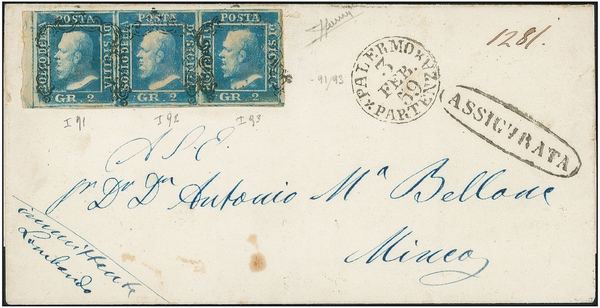 POSTA POSTA POSTA
BOLLO DELLA DI SICILIA BOLLO DELLA DI SICILIA BOLLO DELLA DI SICILIA
GR. 2 GR. 2 GR. 2
I 91 I 92 I 93
-91/93
PALERMO PARTENZA
3
FEB.
59
1281.
ASSICURATA
A S. E.
Dn Dn Antonio Ma Bellone
Mineo
immittente
Lombardo